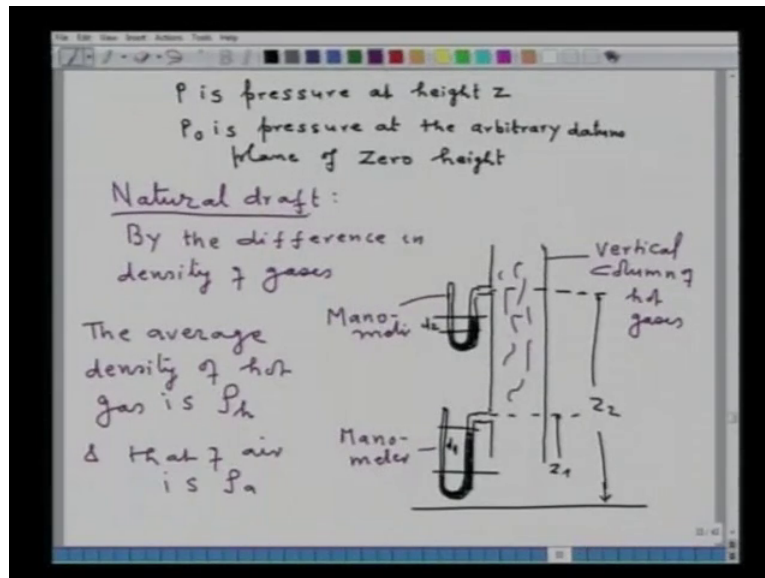 File Edit View Insert Actions Tools Help
P is pressure at height z
P₀ is pressure at the arbitrary datum
plane of Zero height
Natural draft:
By the difference in
density of gases
The average
density of hot
gas is ρh
& that of air
is ρa
Mano-
meter
d2
Mano-
meter
d1
Vertical
column of
hot
gases
Z2
Z1